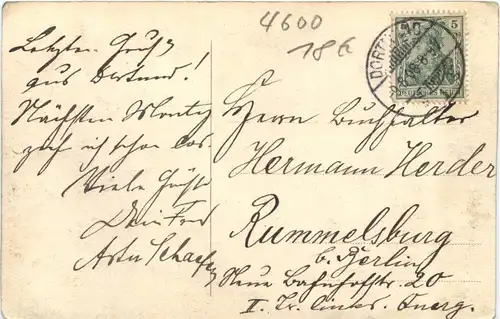 4600
18 €
5
DORTMUND
Letzten Gruß
aus Dortmund!
Nächsten Montag
zieh ich schon los
Viele Grüße
Dein Freund
Artur Schaefer
Herrn Buchhalter
Hermann Herder
Rummelsburg
b. Berlin
Neue Bahnhofstr. 20
II. Tr.